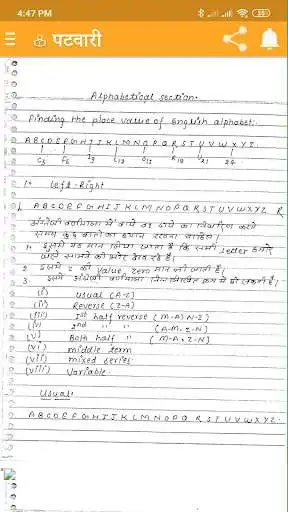 4:47 PM
35
पटवारी
Alphabetical section.
Finding the place value of English alphabet:
A B C D E F G H I J K L M N O P Q R S T U V W X Y Z.
C3 F6 I9 L12 O15 R18 U21 24
1* Left-Right
A B C D E F G H I J K L M N O P Q R S T U V W X Y Z R
अंग्रेजी वर्णमाला में बायें या दायें का निर्धारण करते
समय कुछ बातों का ध्यान रखना चाहिए।
1. इसमें यह मान लिया जाता है कि सभी letter हमारे
सामने की ओर देख रहे हैं।
2 इसमें z की value, zero मान ली जाती है।
3. इसमें अंग्रेजी वर्णमाला निम्नलिखित क्रम में हो सकती है।
(i) usual (A-Z)
(ii) Reverse (Z-A)
(iii) Ist half reverse (M-A)N-Z)
(iv) 2nd " " (A-M, Z-N)
(v) Both half " (M-A, Z-N)
(vi) middle term
(vii) mixed series
(viii) Variable
Usual:
A B C D E F G H I J K L M N O P Q R S T U V W X Y Z.